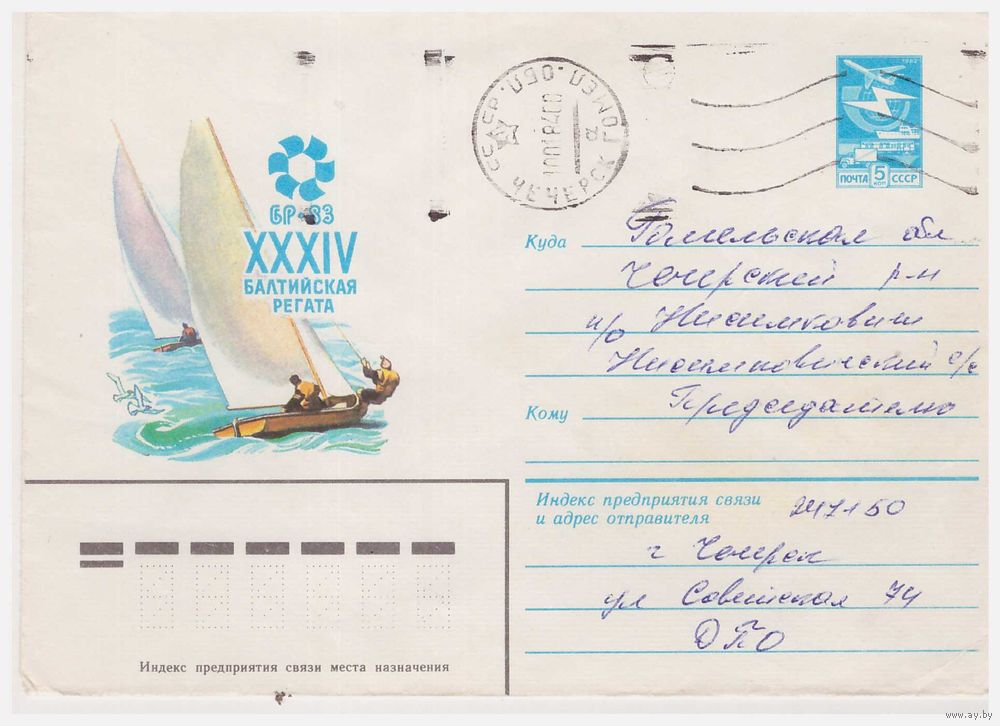 БР-83
XXXIV
БАЛТИЙСКАЯ
РЕГАТА
СССР
ГОМЕЛ. ОБЛ.
ЧЕЧЕРСК
1982
ПОЧТА 5 КОП СССР
Куда Гомельская обл
Чечерский р-н
п/о Нисимковичи
Нисимковический с/с
Кому Председателю
Индекс предприятия связи
и адрес отправителя 247150
г Чечерск
ул Советская 74
ОПО
Индекс предприятия связи места назначения
www.ay.by